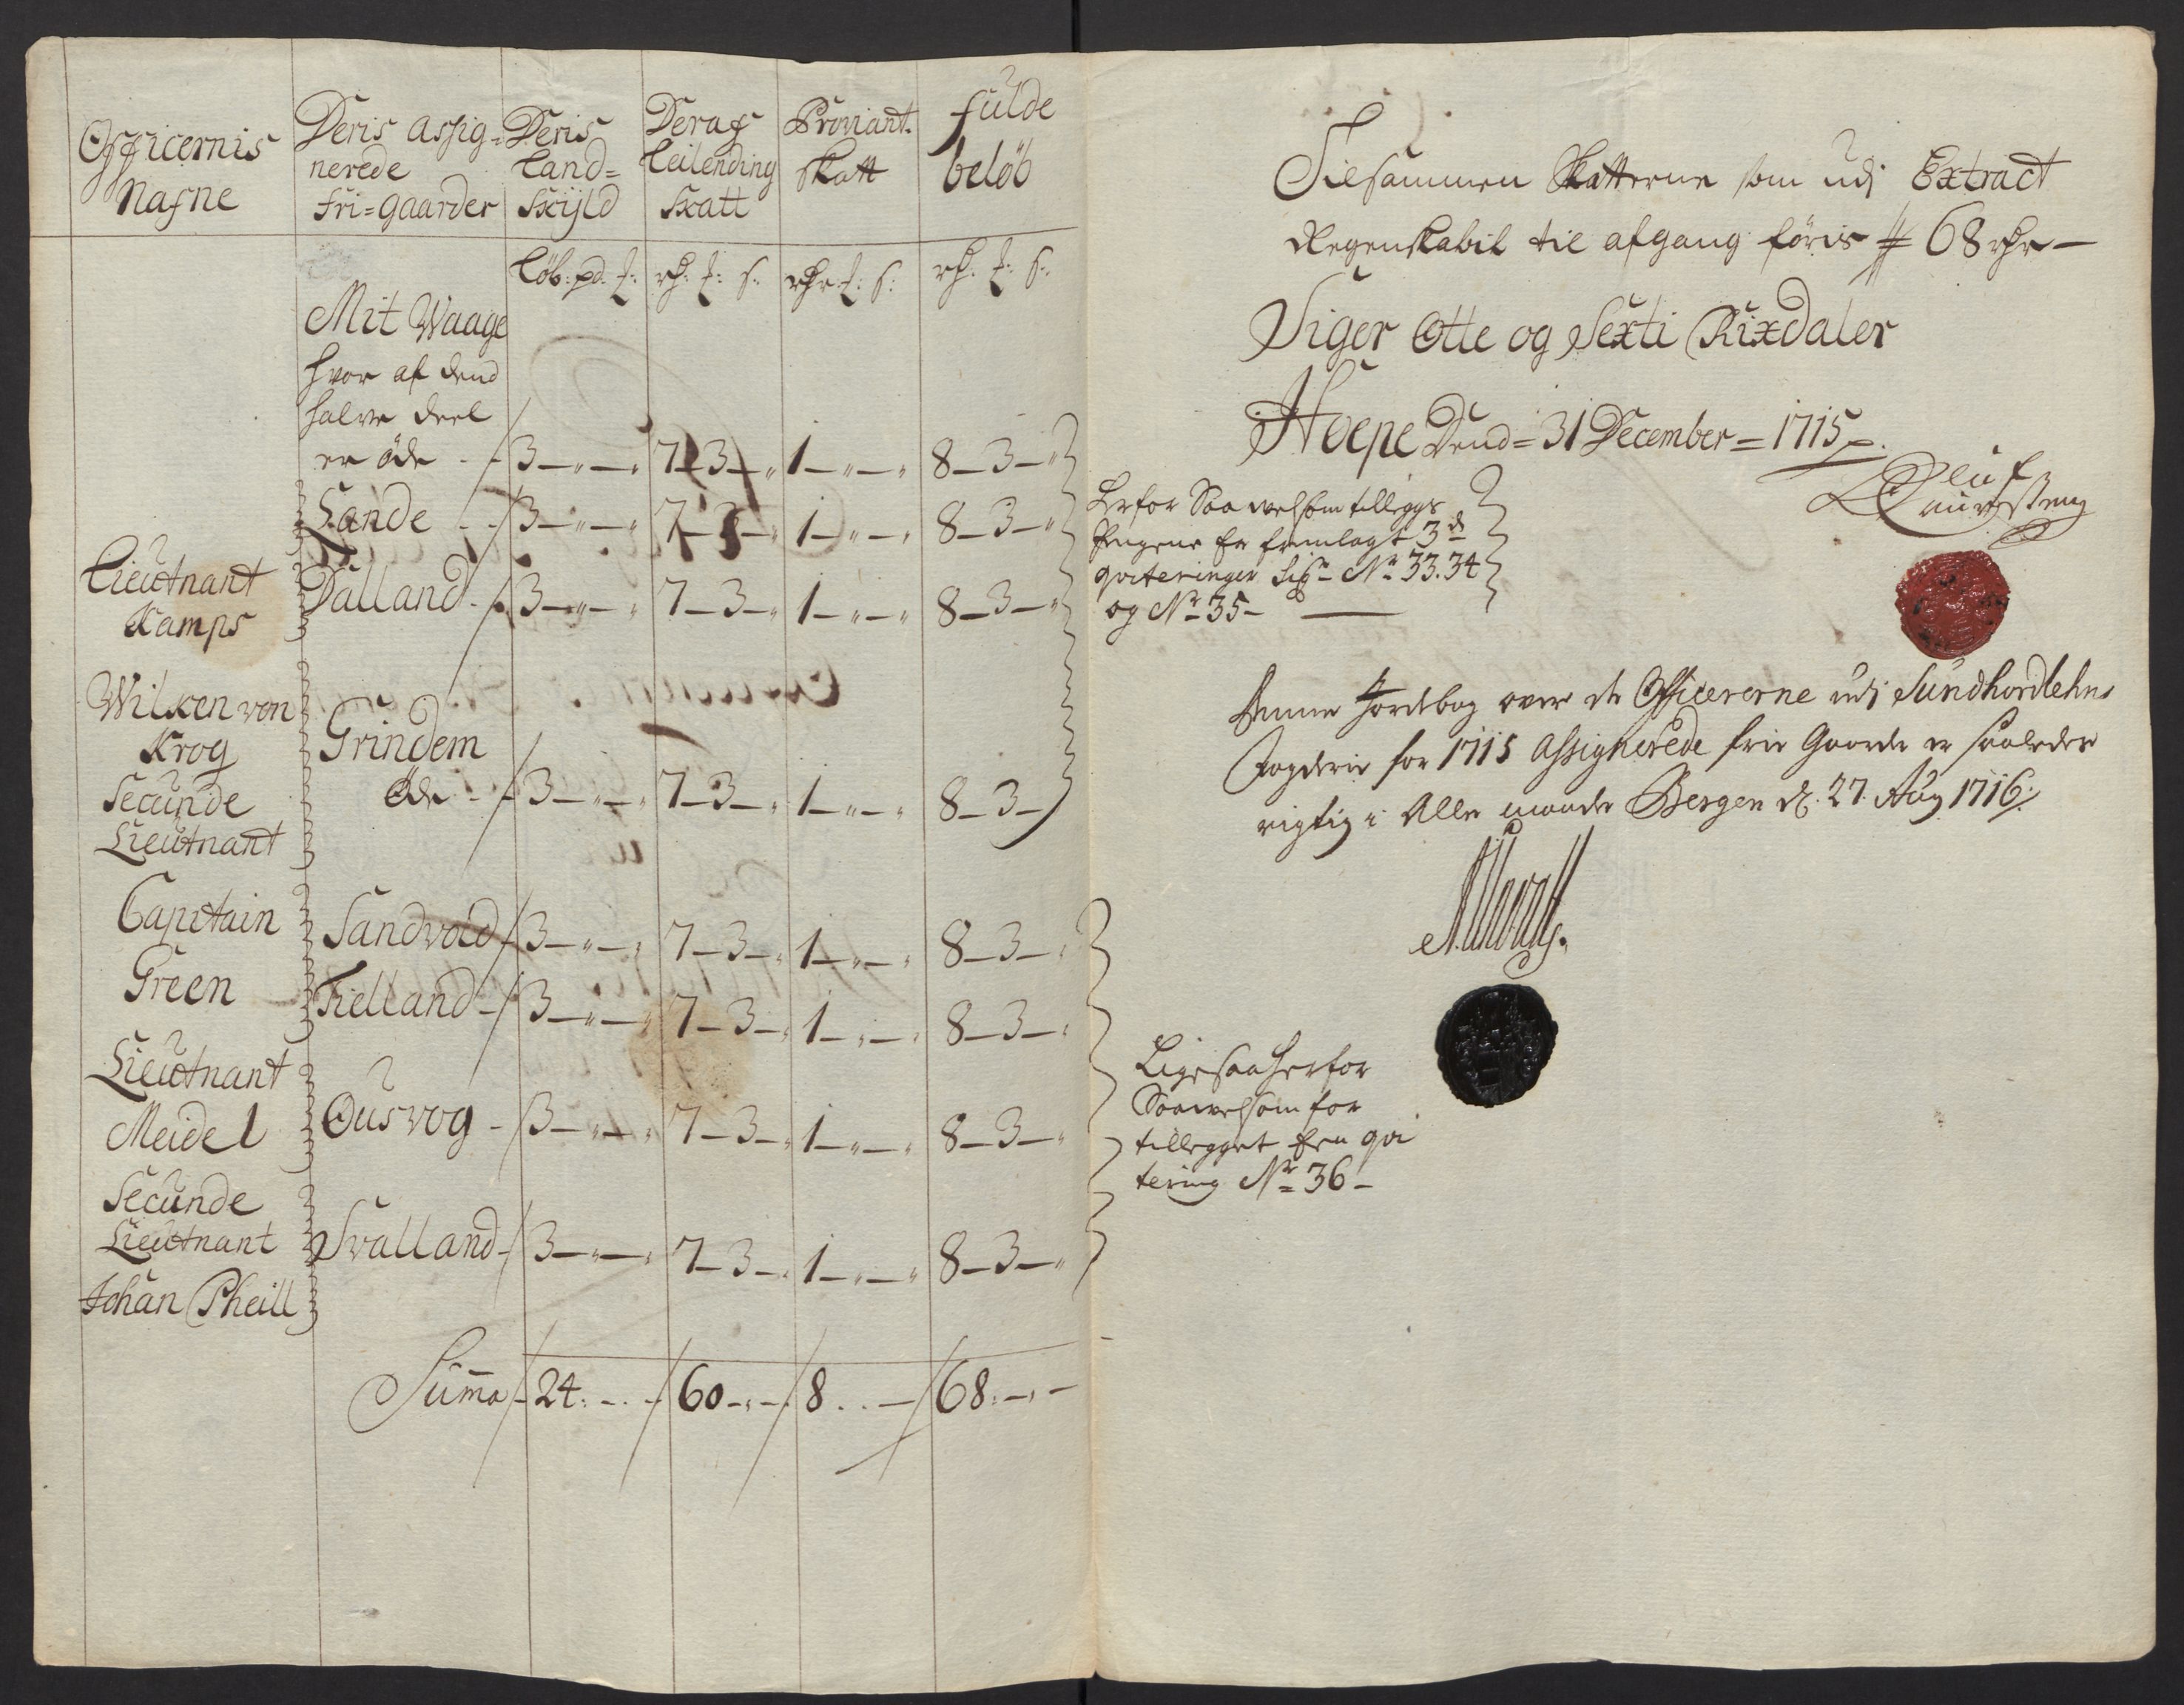 Officernis Nafne | Deris assig- nerede Fri=gaarder | Deris Land= Skyld | Deraf Leilending Skatt | Proviant. Skatt | fulde beløb
Løb: pd. | rh: s: | rhr s: | rh. s:
Mit Waage
hvor af dend
halve deel
er øde - 3 - „ - „ 7 - 3 - „ 1 - „ - „ 8 - 3 - „
Lande - 3 - „ - „ 7 - 3 - „ 1 - „ - „ 8 - 3 - „
Lieutnant
Kamps
Dalland - 3 - „ - „ 7 - 3 - „ 1 - „ - „ 8 - 3 - „
Wilken von
Krog
Secunde
Lieutnant
Grindem
Øde - 3 - „ - „ 7 - 3 - „ 1 - „ - „ 8 - 3 -
Capitain
Green
Sandvold 3 - „ - „ 7 - 3 - „ 1 - „ - „ 8 - 3 - „
Fielland - 3 - „ - „ 7 - 3 - „ 1 - „ - „ 8 - 3 - „
Lieutnant
Meidel
Ousvog - 3 - „ - „ 7 - 3 - „ 1 - „ - „ 8 - 3 - „
Secunde
Lieutnant
Johan Pheill
Svalland - 3 - „ - „ 7 - 3 - „ 1 - „ - „ 8 - 3 - „
Suma - 24 : - . . 60 - „ - 8 . . - 68 : - „ -
Tilsammen Skatterne som udj Extract
Regenskabit til afgang føris # 68 rhr -
Siger Otte og Sexti Rixdaler
Hoepe Dend = 31 December = 1715
Herfor Saa velsom tilleggs
Pengene er fremlagt 3 de
qviteringer No 33. 34
og No 35 -
Denne Jordebog over de Officererne udj Sundhordlehns
Fogderie for 1715 Assignerede frie Gaarde er saaledes
rigtig i Alle maader Bergen d. 27. Aug 1716
Ligesaa herfor
Saavelsom for
tillegget Een qvi
tering No 36 -